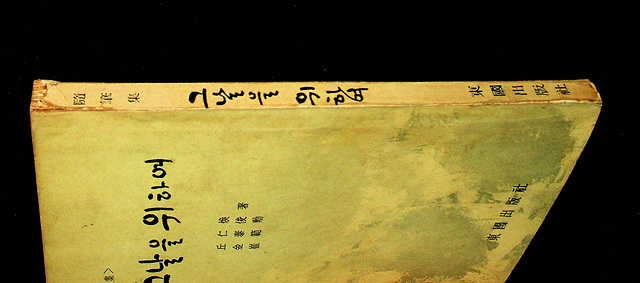 隨筆集 그날을 위하여 東國出版社
集>
그날을 위하여
丘仁煥
金泰俊
崔範勳
著
東國出版社